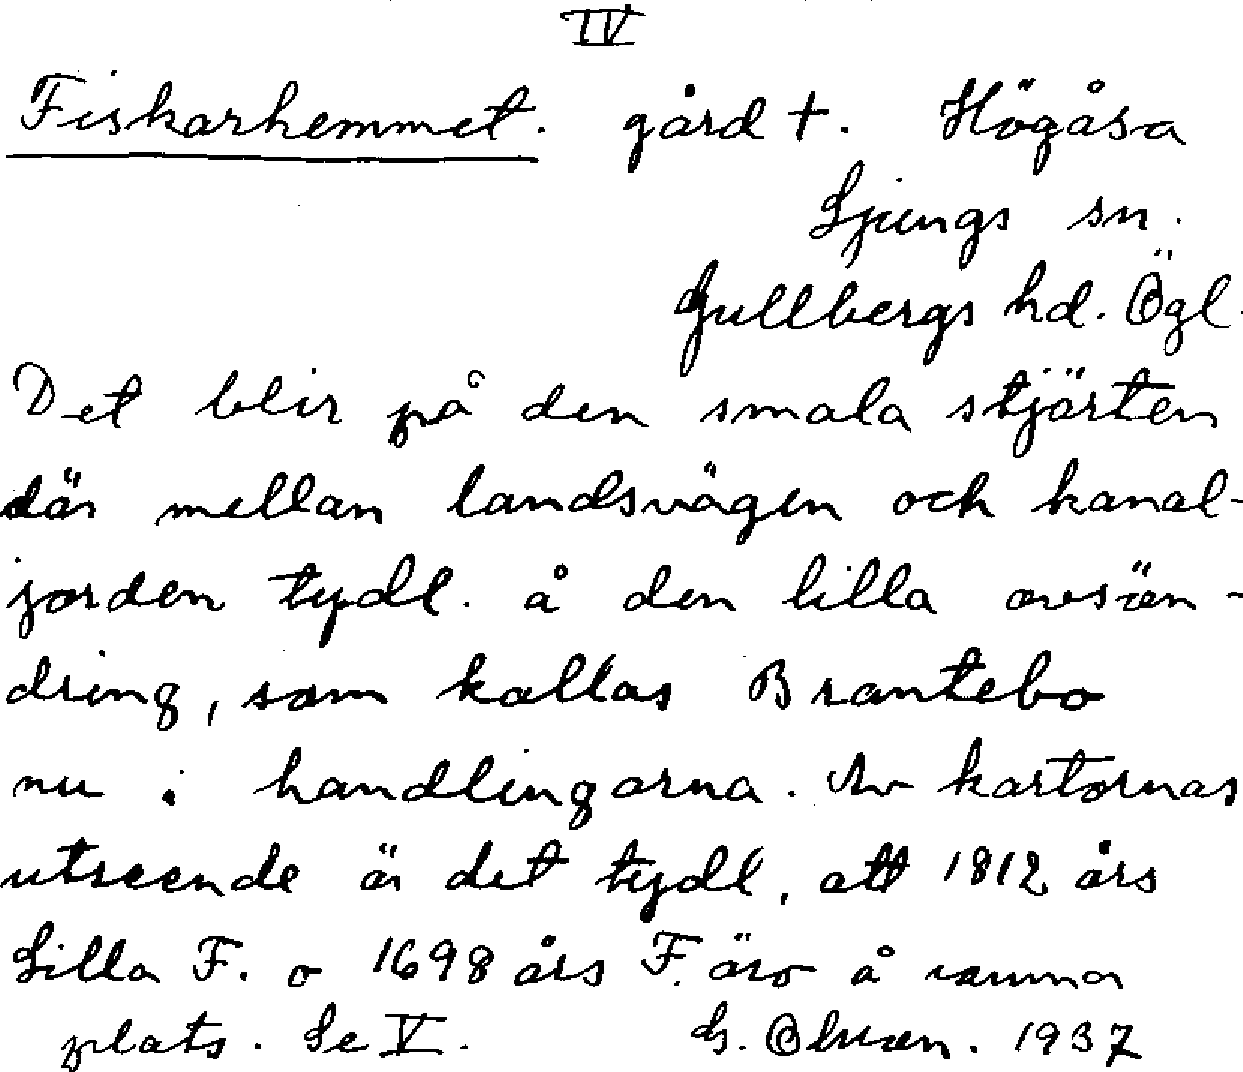 IV
Fiskarhemmet. gård †. Högåsa
Ljungs sn.
Gullbergs hd. Ögl.
Det blir på den smala stjärten
där mellan landsvägen och kanal-
jorden tydl. å den lilla avsön-
dring, som kallas Brantebo
nu i handlingarna. Av kartornas
utseende är det tydl, att 1812 års
Lilla F. o 1698 års F. äro å samma
plats. Se V. G. Olsson. 1937